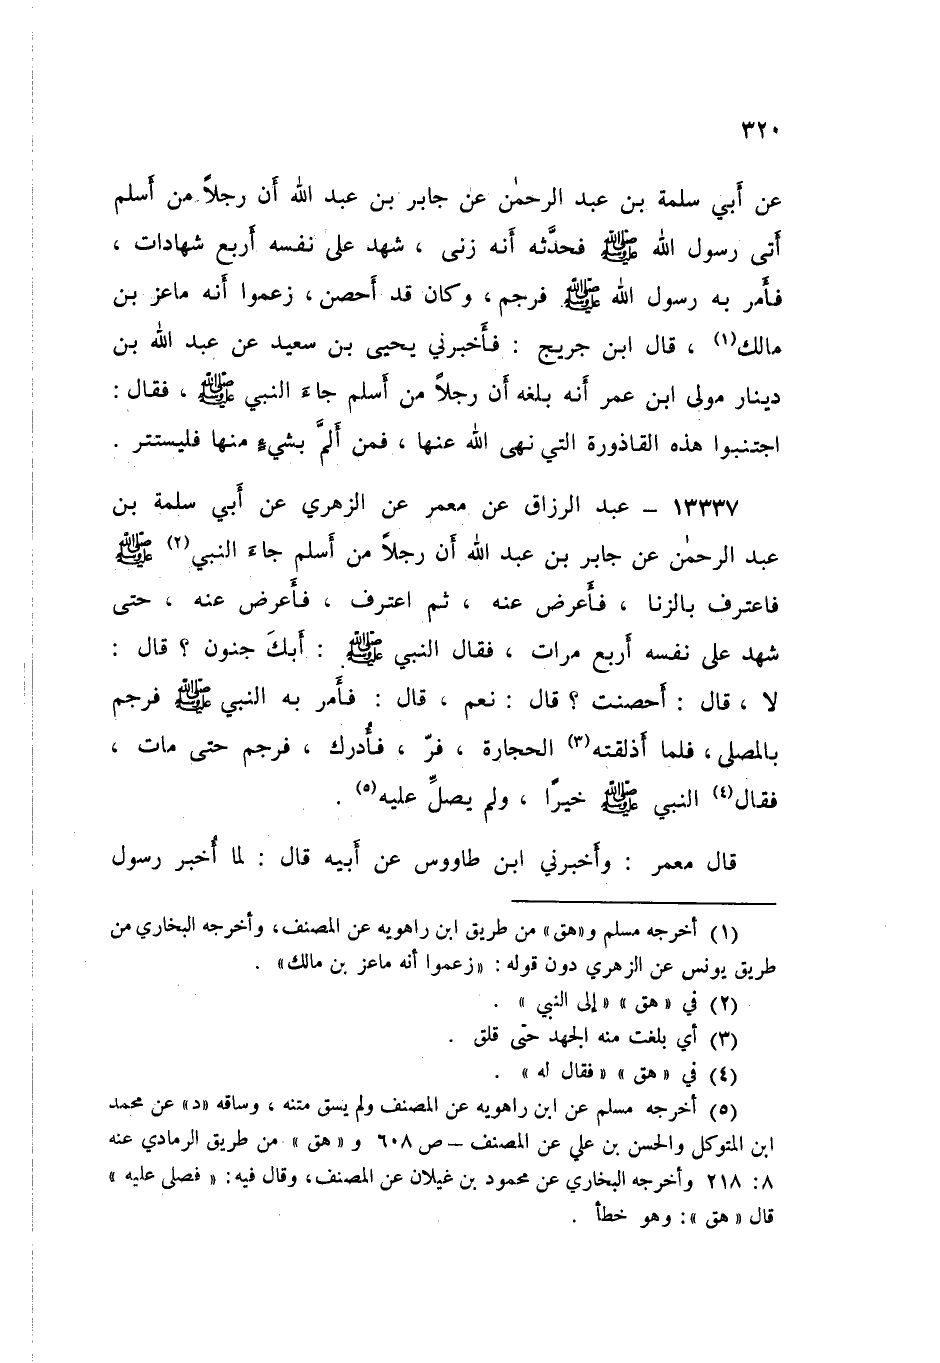 ٣٢٠
عن أَبي سلمة بن عبد الرحمٰن عن جابر بن عبد الله أَن رجلاً من أَسلم
أَتى رسول الله ﷺ فحدَّثه أَنه زنى ، شهد على نفسه أَربع شهادات ،
فأَمر به رسول الله ﷺ فرجم ، وكان قد أَحصن ، زعموا أَنه ماعز بن
مالك(١) ، قال ابن جريج : فأَخبرني يحيى بن سعيد عن عبد الله بن
دينار مولى ابن عمر أَنه بلغه أَن رجلاً من أَسلم جاءَ النبي ﷺ ، فقال :
اجتنبوا هذه القاذورة التي نهى الله عنها ، فمن أَلمَّ بشيءٍ منها فليستتر .
١٣٣٣٧ – عبد الرزاق عن معمر عن الزهري عن أَبي سلمة بن
عبد الرحمٰن عن جابر بن عبد الله أَن رجلاً من أَسلم جاءَ النبي(٢) ﷺ
فاعترف بالزنا ، فأَعرض عنه ، ثم اعترف ، فأَعرض عنه ، حتى
شهد على نفسه أَربع مرات ، فقال النبي ﷺ : أَبكَ جنون ؟ قال :
لا ، قال : أَحصنت ؟ قال : نعم ، قال : فأَمر به النبي ﷺ فرجم
بالمصلى ، فلما أَذلقته(٣) الحجارة ، فرّ ، فأُدرك ، فرجم حتى مات ،
فقال(٤) النبي ﷺ خيرًا ، ولم يصلِّ عليه(٥) .
قال معمر : وأَخبرني ابن طاووس عن أَبيه قال : لما أُخبر رسول
(١) أخرجه مسلم و«هق» من طريق ابن راهويه عن المصنف، وأخرجه البخاري من
طريق يونس عن الزهري دون قوله : «زعموا أنه ماعز بن مالك» .
(٢) في « هق » « إلى النبي » .
(٣) أي بلغت منه الجهد حتّى قلق .
(٤) في « هق » « فقال له » .
(٥) أخرجه مسلم عن ابن راهويه عن المصنف ولم يسق متنه ، وساقه «د» عن محمد
ابن المتوكل والحسن بن علي عن المصنف – ص ٦٠٨ و « هق » من طريق الرمادي عنه
٨: ٢١٨ وأخرجه البخاري عن محمود بن غيلان عن المصنف ، وقال فيه : « فصلى عليه »
قال « هق » : وهو خطأ .